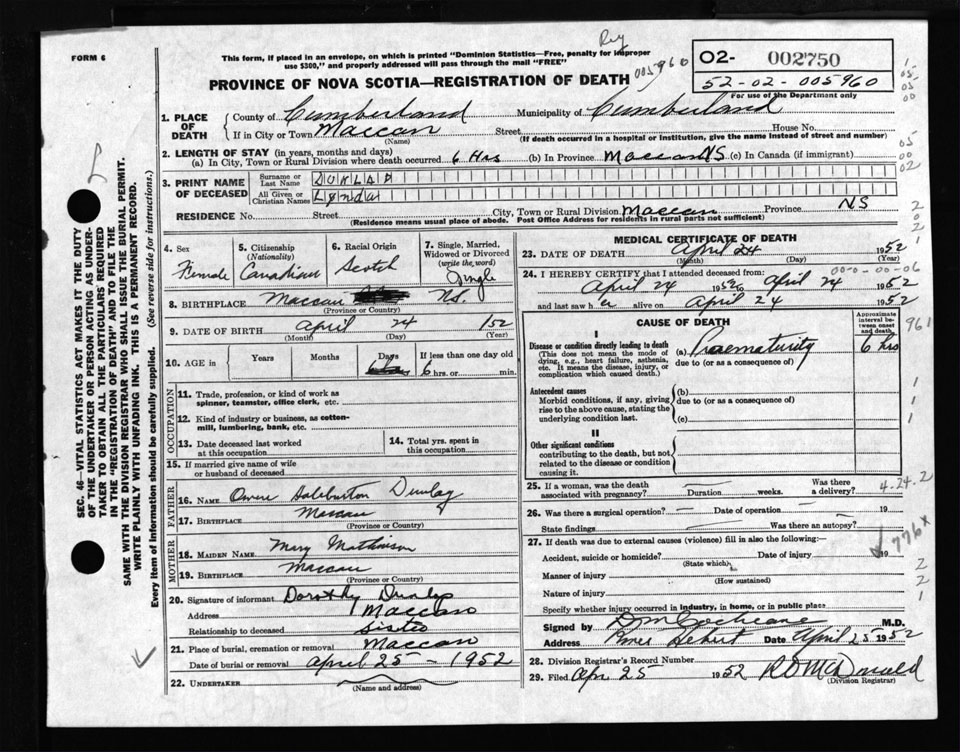 FORM 6
This form, if placed in an envelope, on which is printed "Dominion Statistics—Free, penalty for improper
use $300," and properly addressed will pass through the mail "FREE"
Reg
005960
02- 002750
52-02-005960
For use of the Department only
PROVINCE OF NOVA SCOTIA—REGISTRATION OF DEATH
1. PLACE OF DEATH County of Cumberland Municipality of Cumberland
If in City or Town Maccan Street House No.
(Name) (If death occurred in a hospital or institution, give the name instead of street and number)
2. LENGTH OF STAY (in years, months and days)
(a) In City, Town or Rural Division where death occurred 6 Hrs (b) In Province Maccan NS (c) In Canada (if immigrant)
3. PRINT NAME OF DECEASED
Surname or Last Name DUNLAP
All Given or Christian Names Lynda
RESIDENCE No. Street City, Town or Rural Division Maccan Province NS
(Residence means usual place of abode. Post Office Address for residents in rural parts not sufficient)
4. Sex Female
5. Citizenship (Nationality) Canadian
6. Racial Origin Scotch
7. Single, Married, Widowed or Divorced (write the word) Single
8. BIRTHPLACE Maccan NS.
(Province or Country)
9. DATE OF BIRTH April 24 1952
(Month) (Day) (Year)
10. AGE in Years Months Days If less than one day old
6 hrs. or min.
OCCUPATION
11. Trade, profession, or kind of work as
spinner, teamster, office clerk, etc.
12. Kind of industry or business, as cotton-
mill, lumbering, bank, etc.
13. Date deceased last worked
at this occupation
14. Total yrs. spent in
this occupation
15. If married give name of wife
or husband of deceased
FATHER
16. NAME Owen Haleburton Dunlap
17. BIRTHPLACE Maccan
(Province or Country)
MOTHER
18. MAIDEN NAME Mary Mathinson
19. BIRTHPLACE Maccan
(Province or Country)
20. Signature of informant Dorothy Dunlop
Address Maccan
Relationship to deceased Sister
21. Place of burial, cremation or removal Maccan
Date of burial or removal April 25 - 1952
22. UNDERTAKER
(Name and address)
MEDICAL CERTIFICATE OF DEATH
23. DATE OF DEATH April 24 1952
(Month) (Day) (Year)
24. I HEREBY CERTIFY that I attended deceased from:
00-0-00-06
April 24 1952 to April 24 1952
and last saw her alive on April 24 1952
CAUSE OF DEATH
Approximate interval between onset and death
I
Disease or condition directly leading to death
(This does not mean the mode of
dying, e.g., heart failure, asthenia,
etc. It means the disease, injury, or
complication which caused death.)
(a) Praematurity 6 hrs
due to (or as a consequence of)
961
Antecedent causes
Morbid conditions, if any, giving
rise to the above cause, stating the
underlying condition last.
(b)
due to (or as a consequence of)
(c)
II
Other significant conditions
contributing to the death, but not
related to the disease or condition
causing it.
25. If a woman, was the death
associated with pregnancy? Duration weeks. Was there
a delivery?
4.24.2
26. Was there a surgical operation? Date of operation 19
State findings Was there an autopsy?
27. If death was due to external causes (violence) fill in also the following:
776x
Accident, suicide or homicide? Date of injury 19
(State which)
Manner of injury
(How sustained)
Nature of injury
Specify whether injury occurred in industry, in home, or in public place
Signed by D M Cochrane M.D.
Address Date April 25 1952
28. Division Registrar's Record Number
29. Filed Apr 25 1952 R D McDonald
(Division Registrar)
SEC. 46—VITAL STATISTICS ACT MAKES IT THE DUTY
OF THE UNDERTAKER OR PERSON ACTING AS UNDER-
TAKER TO OBTAIN ALL THE PARTICULARS REQUIRED
IN THE "REGISTRATION OF DEATH" AND TO FILE THE
SAME WITH THE DIVISION REGISTRAR WHO SHALL ISSUE THE BURIAL PERMIT.
WRITE PLAINLY WITH UNFADING INK. THIS IS A PERMANENT RECORD.
Every item of information should be carefully supplied. (See reverse side for instructions.)